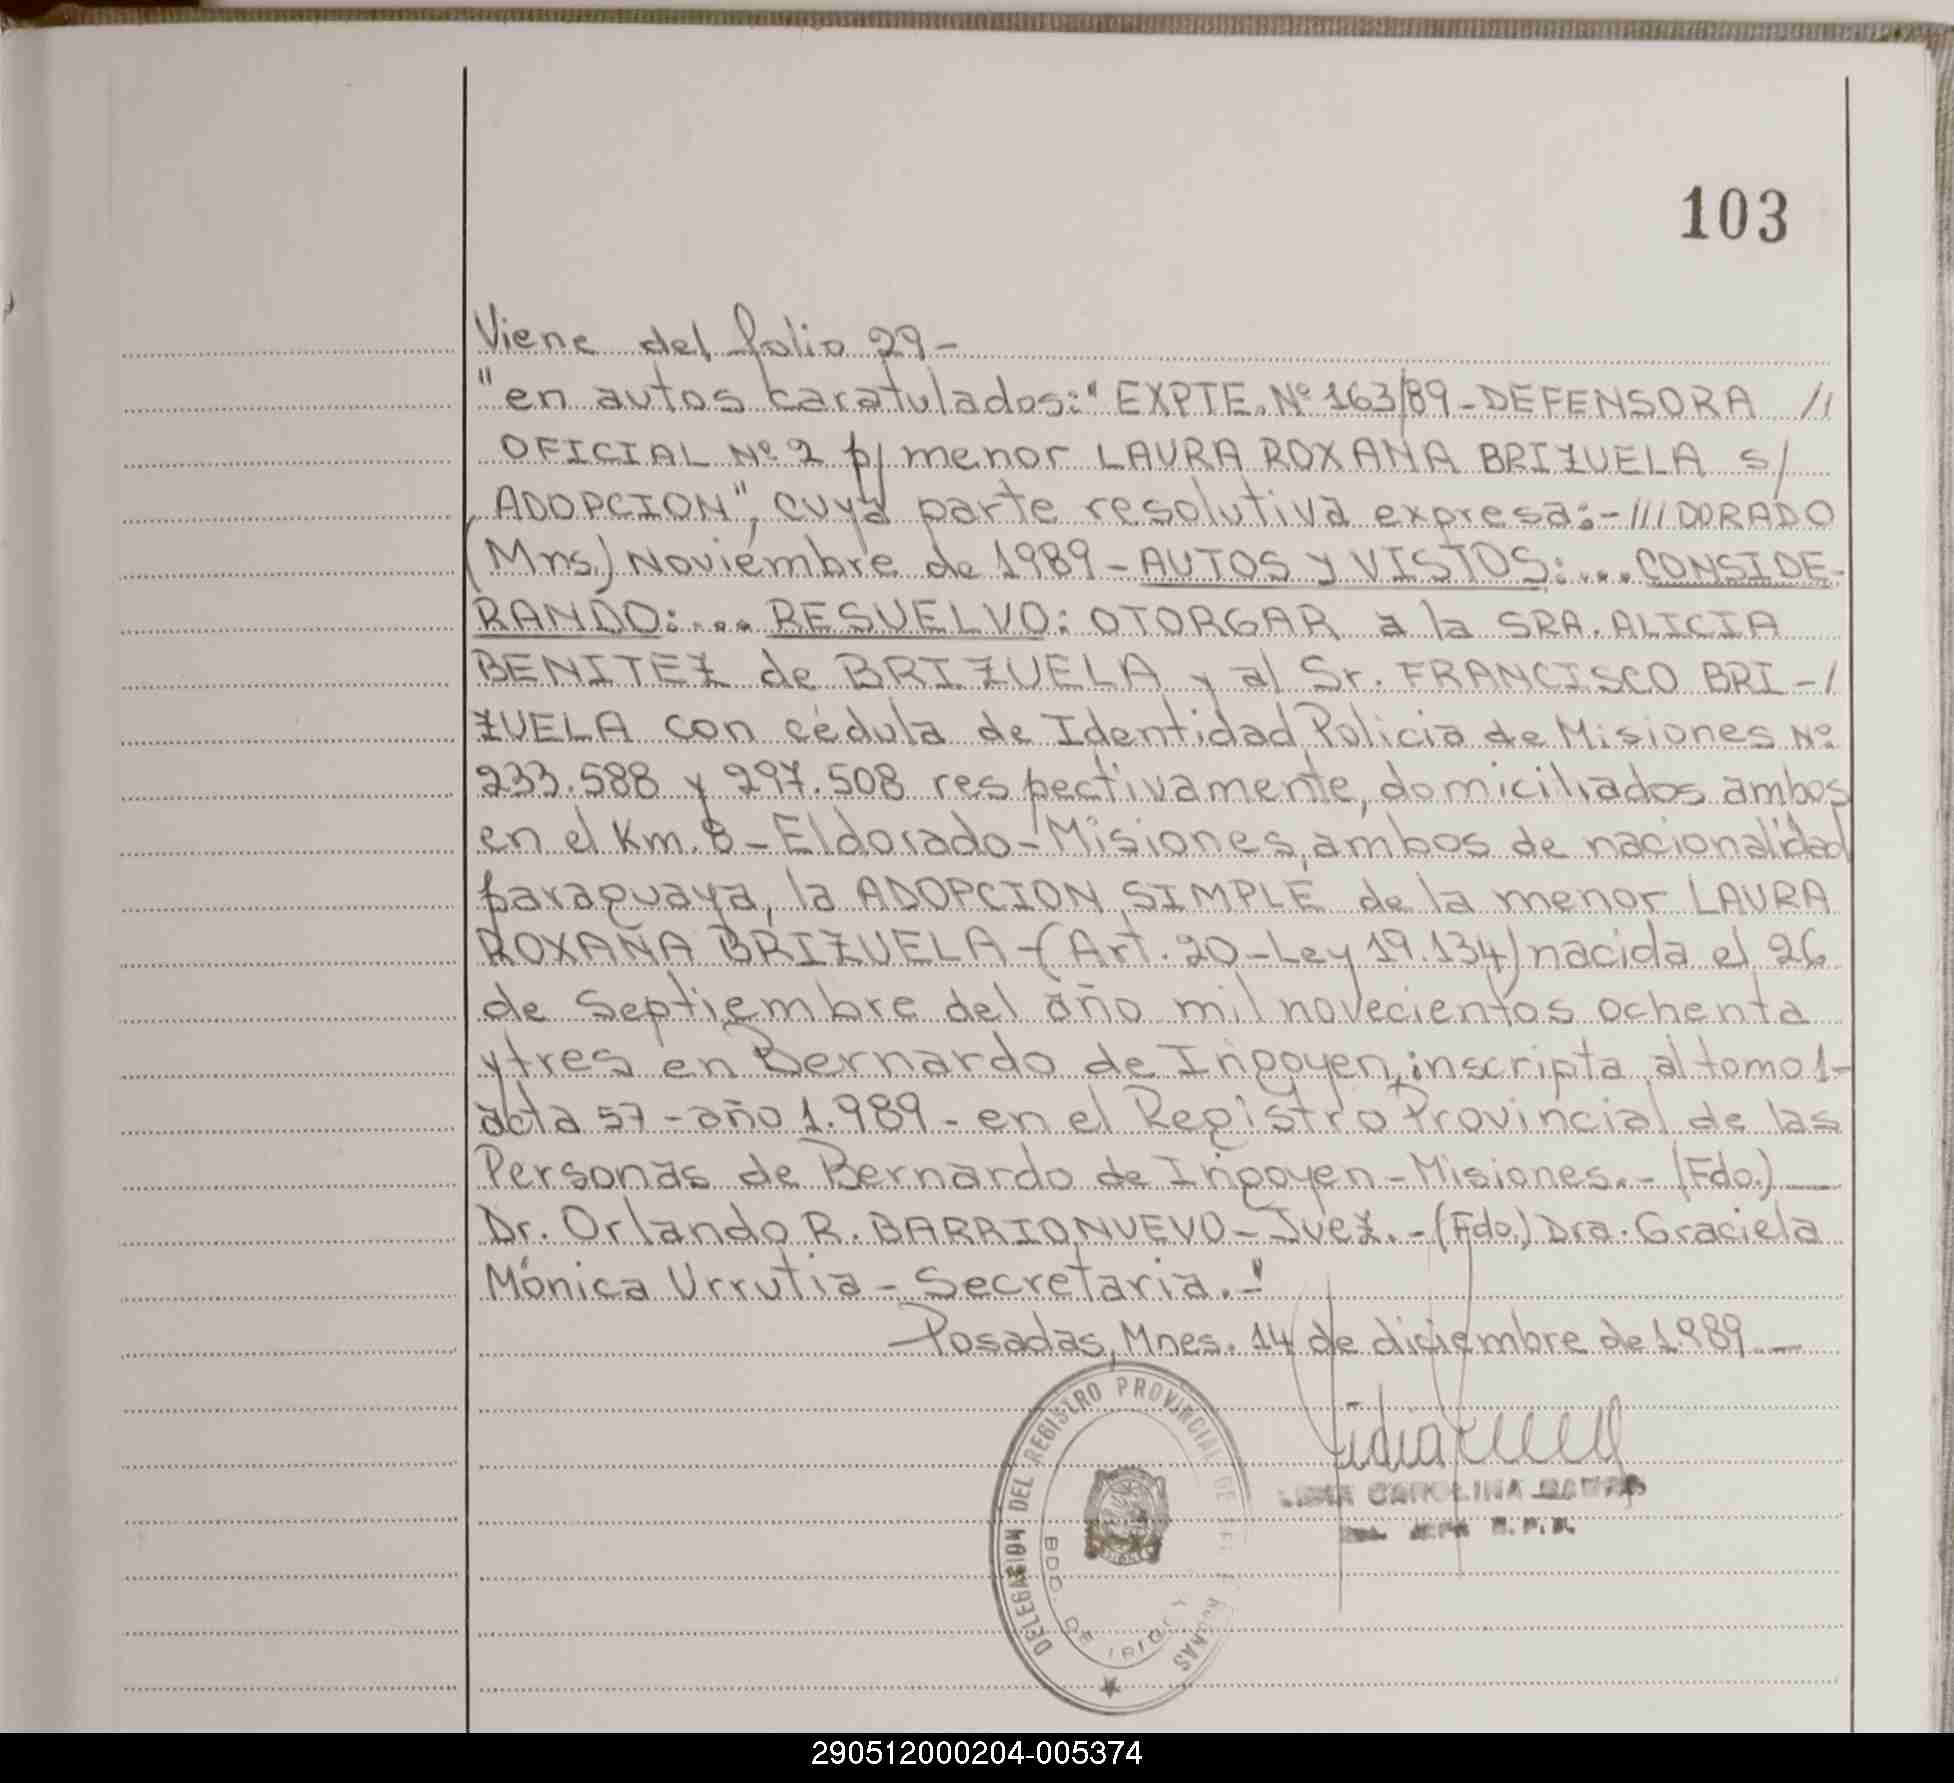 103
Viene del folio 29-
"en autos caratulados:" EXPTE. Nº 163/89-DEFENSORA //
OFICIAL Nº 2 p/ menor LAURA ROXANA BRIZUELA s/
ADOPCION", cuya parte resolutiva expresa:-///DORADO
(Mns.) Noviembre de 1989-AUTOS y VISTOS:... CONSIDE-
RANDO:... RESUELVO: OTORGAR a la SRA. ALICIA
BENITEZ de BRIZUELA y al Sr. FRANCISCO BRI-/
ZUELA con cédula de Identidad Policia de Misiones Nº
233.588 y 297.508 respectivamente, domiciliados ambos
en el Km. 8-Eldorado-Misiones, ambos de nacionalidad
paraguaya, la ADOPCION SIMPLE de la menor LAURA
ROXANA BRIZUELA-(Art. 20-Ley 19.134) nacida el 26
de Septiembre del año mil novecientos ochenta
y tres en Bernardo de Irigoyen, inscripta al tomo 1-
acta 57-año 1.989-en el Registro Provincial de las
Personas de Bernardo de Irigoyen-Misiones.-(Fdo.)
Dr. Orlando R. BARRIONUEVO-Juez.-(Fdo.) Dra. Graciela
Mónica Urrutia-Secretaria.-"
Posadas, Mnes. 14 de diciembre de 1989.-
DELEGACION DEL REGISTRO PROVINCIAL DE
BDO. DE IRIGOY
CAROLINA
290512000204-005374